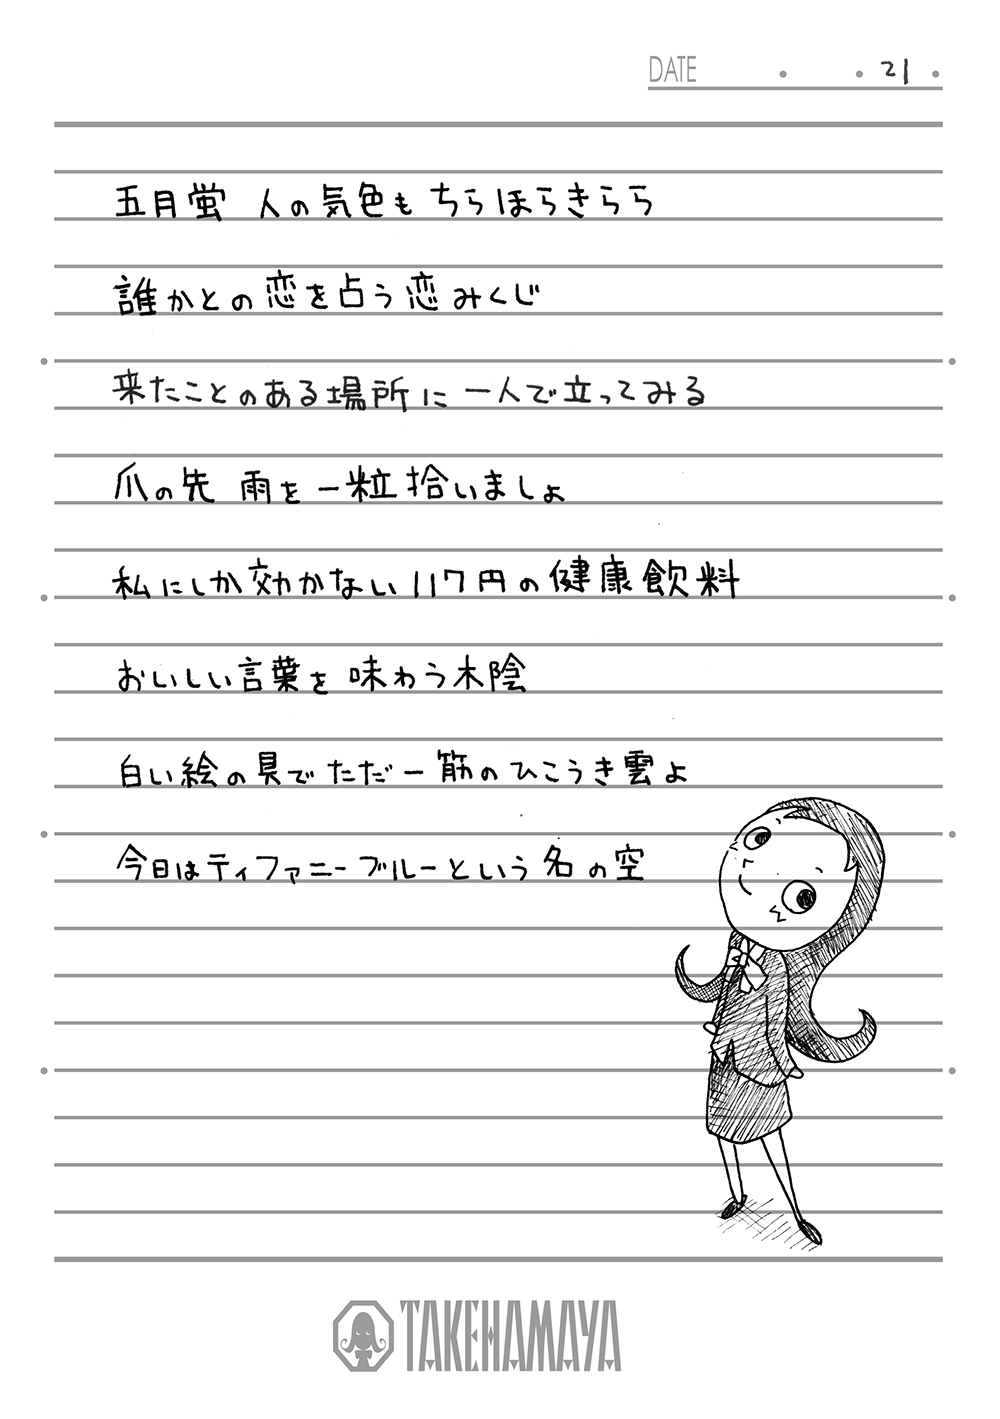 DATE ・ ・21・
五月蛍 人の気色も ちらほらきらら
誰かとの恋を占う恋みくじ
来たことのある場所に 一人で立ってみる
爪の先 雨を一粒拾いましょ
私にしか効かない117円の健康飲料
おいしい言葉を味わう木陰
白い絵の具でただ一筋のひこうき雲よ
今日はティファニーブルーという名の空
TAKEHAMAYA